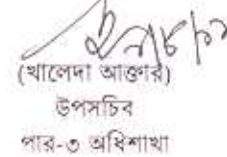 (খালেদা আক্তার)
উপসচিব
পার-৩ অধিশাখা